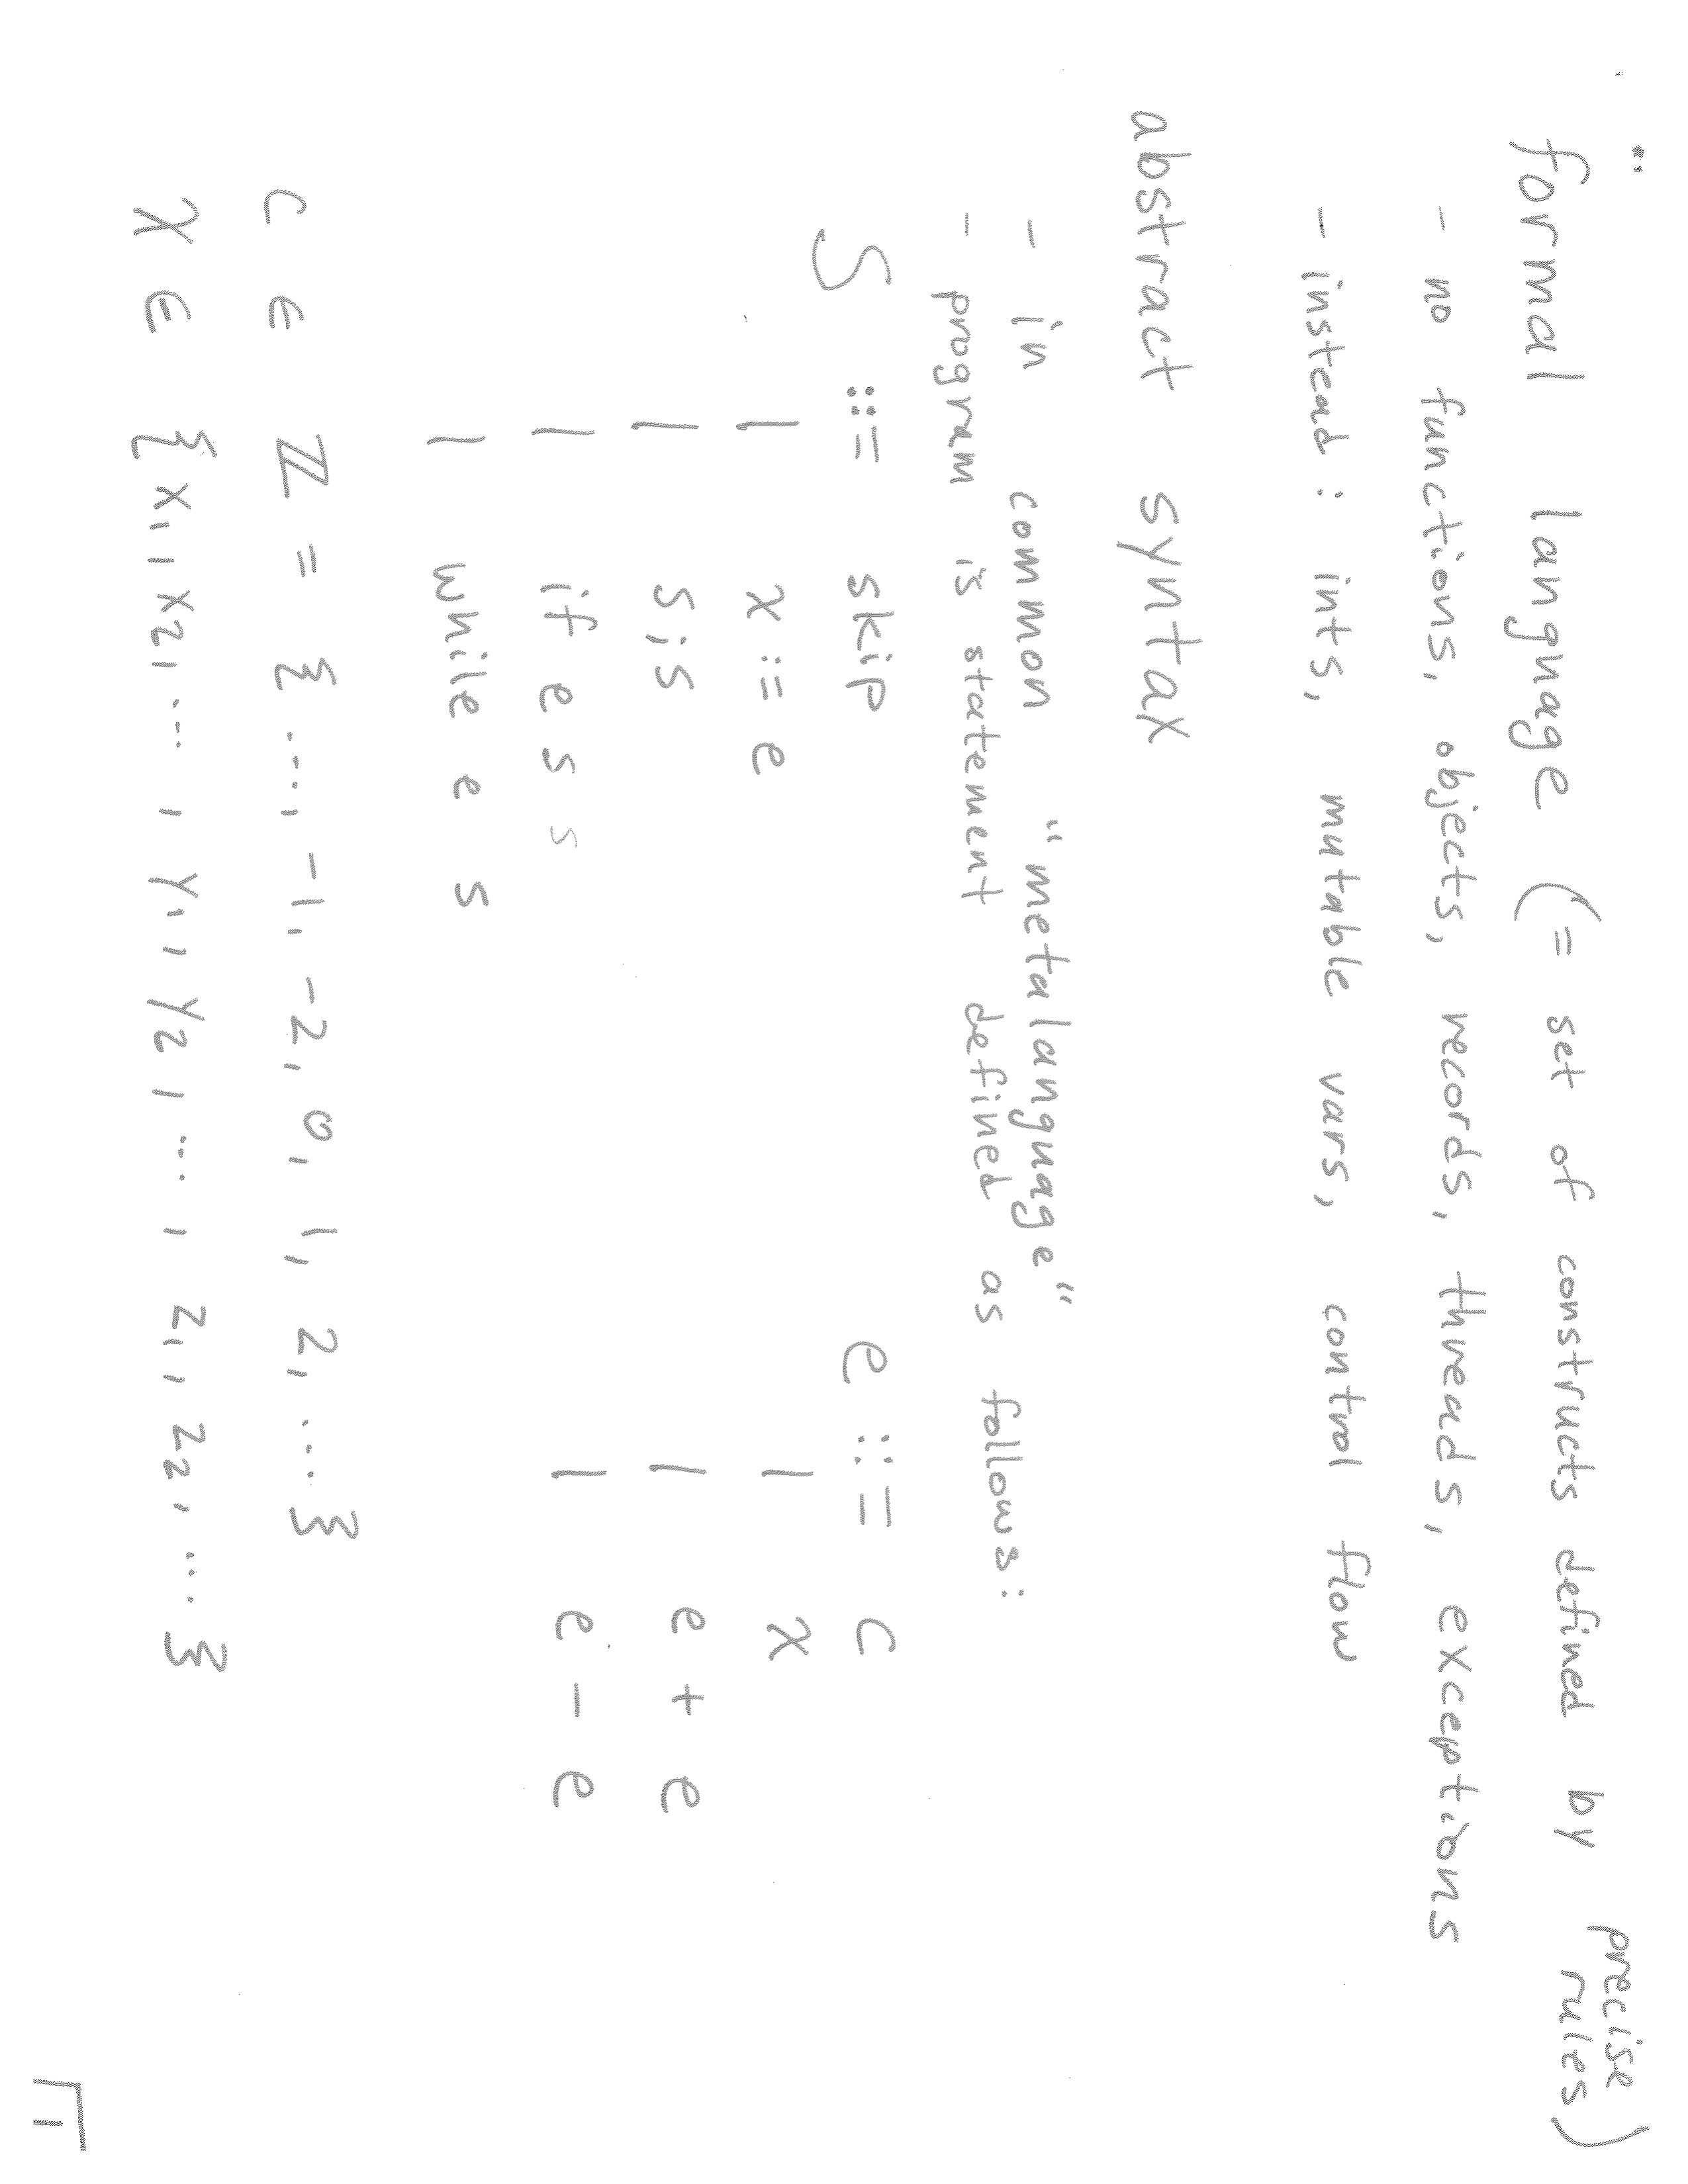 formal language (= set of constructs defined by precise rules)
- no functions, objects, records, threads, exceptions
- instead: ints, mutable vars, control flow
abstract syntax
- in common "metalanguage"
- program is statement defined as follows:
S ::= skip e ::= c
| x := e | x
| s;s | e + e
| if e s s | e - e
| while e s
c ∈ ℤ = {..., -1, -2, 0, 1, 2, ...}
x ∈ {x1, x2, ..., y1, y2, ..., z1, z2, ...}
1